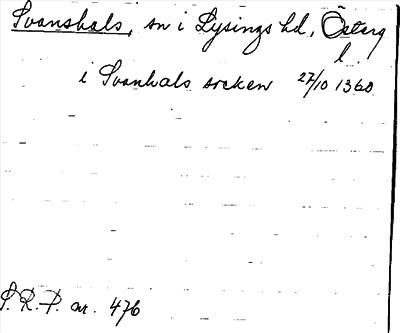 Svanshals, sn i Lysings hd, Österg
l.
i Svanhals socken 27/10 1360
S.R.P. nr. 476